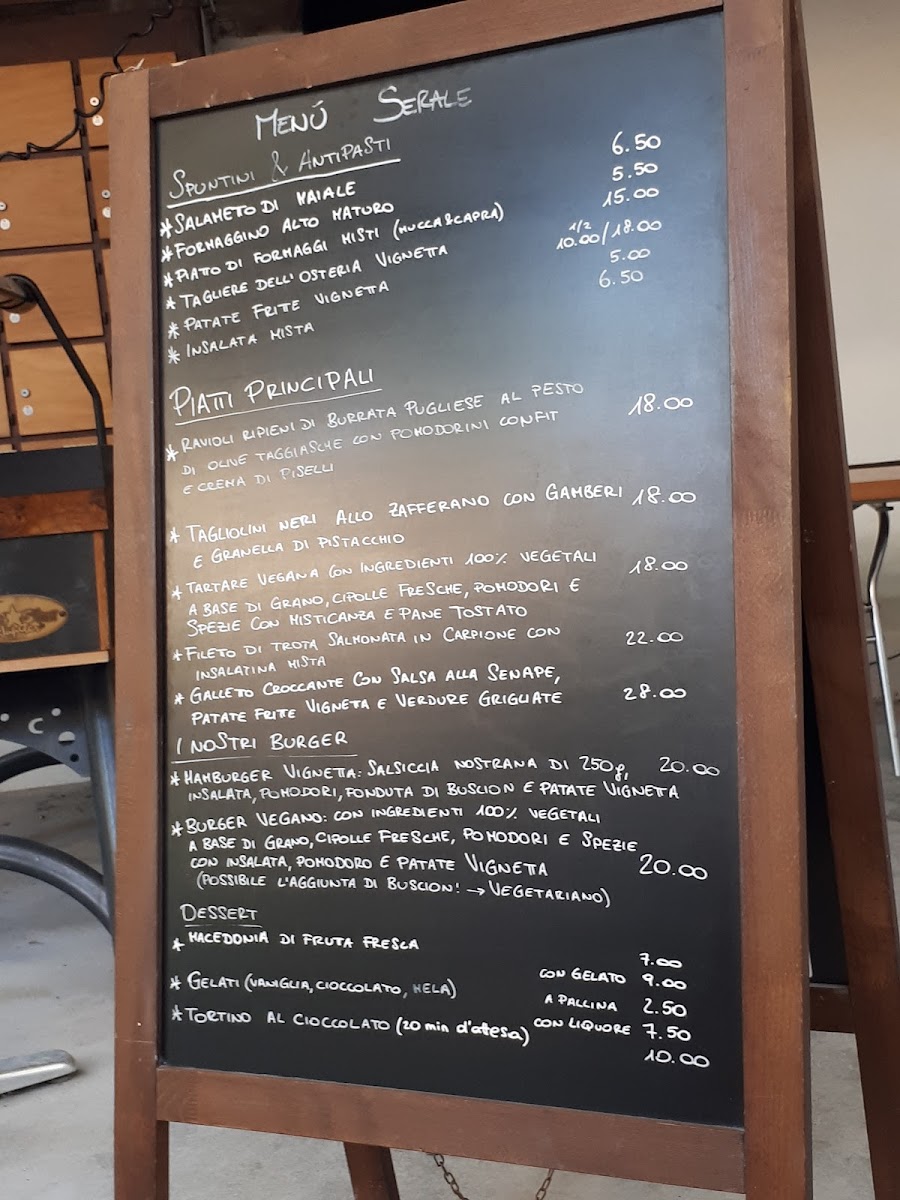 MENÚ SERALE
SPUNTINI & ANTIPASTI
* SALAMETO DI MAIALE 6.50
* FORMAGGINO ALTO MATURO 5.50
* PIATTO DI FORMAGGI MISTI (MUCCA&CAPRA) 15.00
* TAGLIERE DELL'OSTERIA VIGNETTA 1/2 10.00/18.00
* PATATE FRITE VIGNETTA 5.00
* INSALATA MISTA 6.50
PIATTI PRINCIPALI
* RAVIOLI RIPIENI DI BURRATA PUGLIESE AL PESTO
DI OLIVE TAGGIASCHE CON POMODORINI CONFIT 18.00
E CREMA DI PISELLI
* TAGLIOLINI NERI ALLO ZAFFERANO CON GAMBERI 18.00
E GRANELLA DI PISTACCHIO
* TARTARE VEGANA CON INGREDIENTI 100% VEGETALI 18.00
A BASE DI GRANO, CIPOLLE FRESCHE, POMODORI E
SPEZIE CON MISTICANZA E PANE TOSTATO
* FILETO DI TROTA SALMONATA IN CARPIONE CON 22.00
INSALATINA MISTA
* GALLETO CROCCANTE CON SALSA ALLA SENAPE,
PATATE FRITE VIGNETA E VERDURE GRIGLIATE 28.00
I NOSTRI BURGER
* HAMBURGER VIGNETTA: SALSICCIA NOSTRANA DI 250g, 20.00
INSALATA, POMODORI, FONDUTA DI BUSCION E PATATE VIGNETTA
* BURGER VEGANO: CON INGREDIENTI 100% VEGETALI
A BASE DI GRANO, CIPOLLE FRESCHE, POMODORI E SPEZIE
CON INSALATA, POMODORO E PATATE VIGNETTA 20.00
(POSSIBILE L'AGGIUNTA DI BUSCION! → VEGETARIANO)
DESSERT
* MACEDONIA DI FRUTA FRESCA 7.00
CON GELATO 9.00
* GELATI (VANIGLIA, CIOCCOLATO, MELA) A PALLINA 2.50
CON LIQUORE 7.50
* TORTINO AL CIOCCOLATO (20 min d'atesa) 10.00